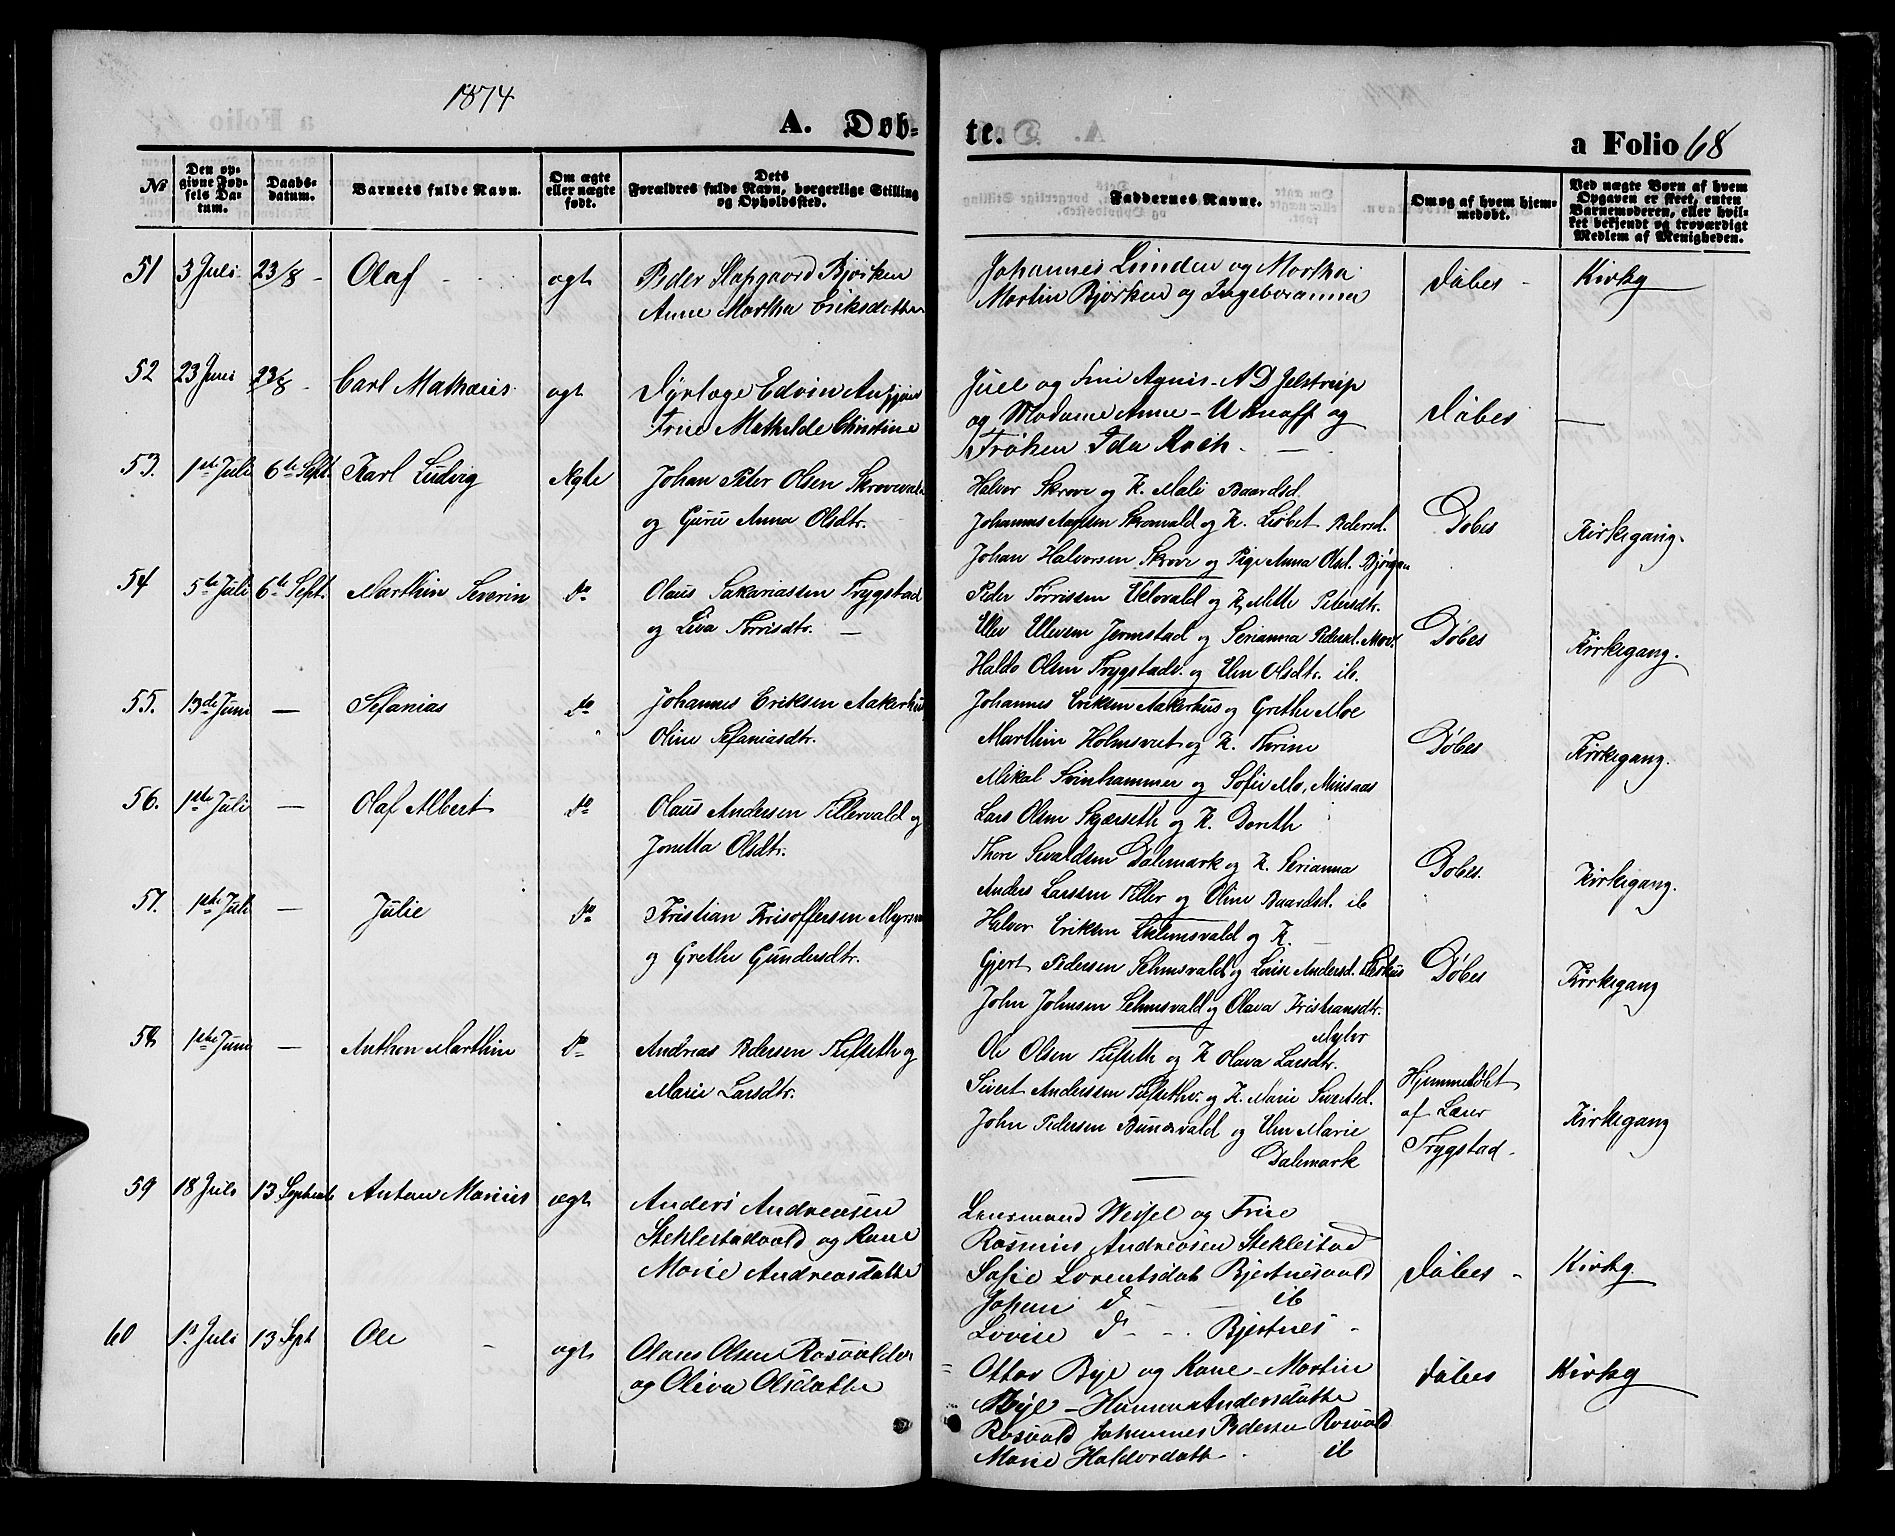 1874
A. Døb-
te.
a Folio 68
No
Den op-
givne Fød-
sels Da-
tum.
Daabs-
datum.
Barnets fulde Navn.
Om ægte
eller uægte
født.
Dets
Forældres fulde Navn, borgerlige Stilling
og Opholdssted.
Faddernes Navne.
Om og af hvem hjem-
medøbt.
Ved uægte Børn af hvem
Opgaven er skeet, enten
Barnemoderen, eller hvil-
ket bekjendt og troværdigt
Medlem af Menigheden.
51 3 Juli 23/8 - Olaf - ægt Peder Slapgaard Bjørken
Anne Martha Eriksdatter
Johannes Lunden og Martha
Martin Bjørken og Ingeboranna
Døbes - Kirkg
52 23 Juni 23/8 - Carl Mathæus ægt Dyrlæge Edvin
Frue Mathilde Christine
Juel og Frue Agnis - A D Jelstrup
og Madame Anne - U Knoff og
Frøken Ida Koch. -
Døbes -
53. 1ste Juli 6te Sept. Karl Ludvig Ægte Johan Peter Olsen Skrovevald
og Guru Anna Olsdtr.
Halvor Skrove og K. Mali Baardsd.
Johannes Aagesen Skrovvald og K. Lisbet Pedersd.
Johan Halvorsen Skrove og Pige Anna Olsd. Bjørgan
Døbes Kirkegang.
54 5te Juli 6te Sept. Marthin Severin Do Olaus Sakariassen Trygstad
og Liva Torrisdtr. -
Peder Torrissen og K. Mette Petersdtr.
Ellev Ellevsen Jermstad og Serianna Pedersd. Moe.
Haldo Olsen Trygstadv. og Elen Olsdtr. ib.
Døbes Kirkegang.
55. 13de Juni - Sefanias Do Johannes Eriksen Aakerhus
Oline Sefaniasdtr.
Johannes Eriksen Aakerhus og Grethe Moe
Marthin Holmsveet og K. Torine
Mikal Svinhammer og Sofie Mo, Minsaas
Døbes Kirkegang.
56. 1ste Juli - Olaf Albert Do Olaus Andersen Tillervald og
Jonetta Olsdtr.
Lars Olsen Skjærseth og K. Doreth
Thore Sivaldsen Dalemark og K. Serianna
Anders Larssen Tiller og Oline Baardsd. ib
Døbes. Kirkegang.
57. 1ste Juli - Julie Do Kristian Kristoffersen Myrsve
og Grethe Gundersdtr.
Halvor Eriksen og K. -
Gjert Pedersen Selemsvald og Louise Andersd.
John Johnsen Selemsvald og Olava Kristiansdtr.
Mylov
Døbes Kirkegang
58 1ste Juni - Anthon Marthin Do Andreas Pedersen Tufseth og
Marie Larsdtr.
Ole Olsen Tufseth og K Olava Larsdtr.
Sivert Anderssen Tufsethv. og K. Marie Sivertsd.
John Pedersen Bunesvald og Elen Marie
Dalemark
Hjemmedøbt
af Lærer
Trygstad.
Kirkegang
59 18 Juli 13 September Anton Marius ægt Anders Andreassen
Steklestadvald og Kone
Marie Andreasdatter
Lensmand Wessel og Frue
Rasmus Andreasen Steklestad
Sofie Lorentsdat Bjertnesvald
Johan d - - ib
Lovise d - - Bjertnes -
Døbes - Kirkg.
60 1ste Juli 13 Sept Ole - ægt Olaus Olsen Rosvolden
og Oliva Olsdatter
Ottar Bye og Kone - Martin
Bye - Hanna Andersdatter
Rosvold Johannes Pedersen Rosvold
Marie Haldorsdatter - ib
Døbes Kirkg